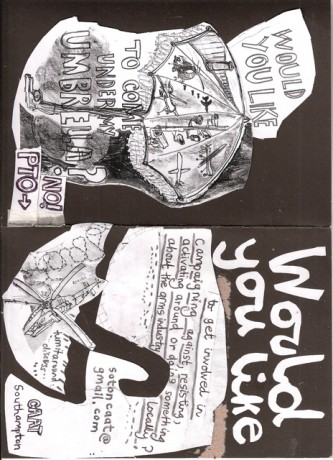 WOULD
YOU LIKE
TO COME
UNDER MY
UMBRELLA?
NO!
PTO→
Would
you like
to get involved in
campaigning against, resisting,
activating around or doing something
about the arms industry locally?
sotoncaat@
gmail.com
CAAT
Southampton